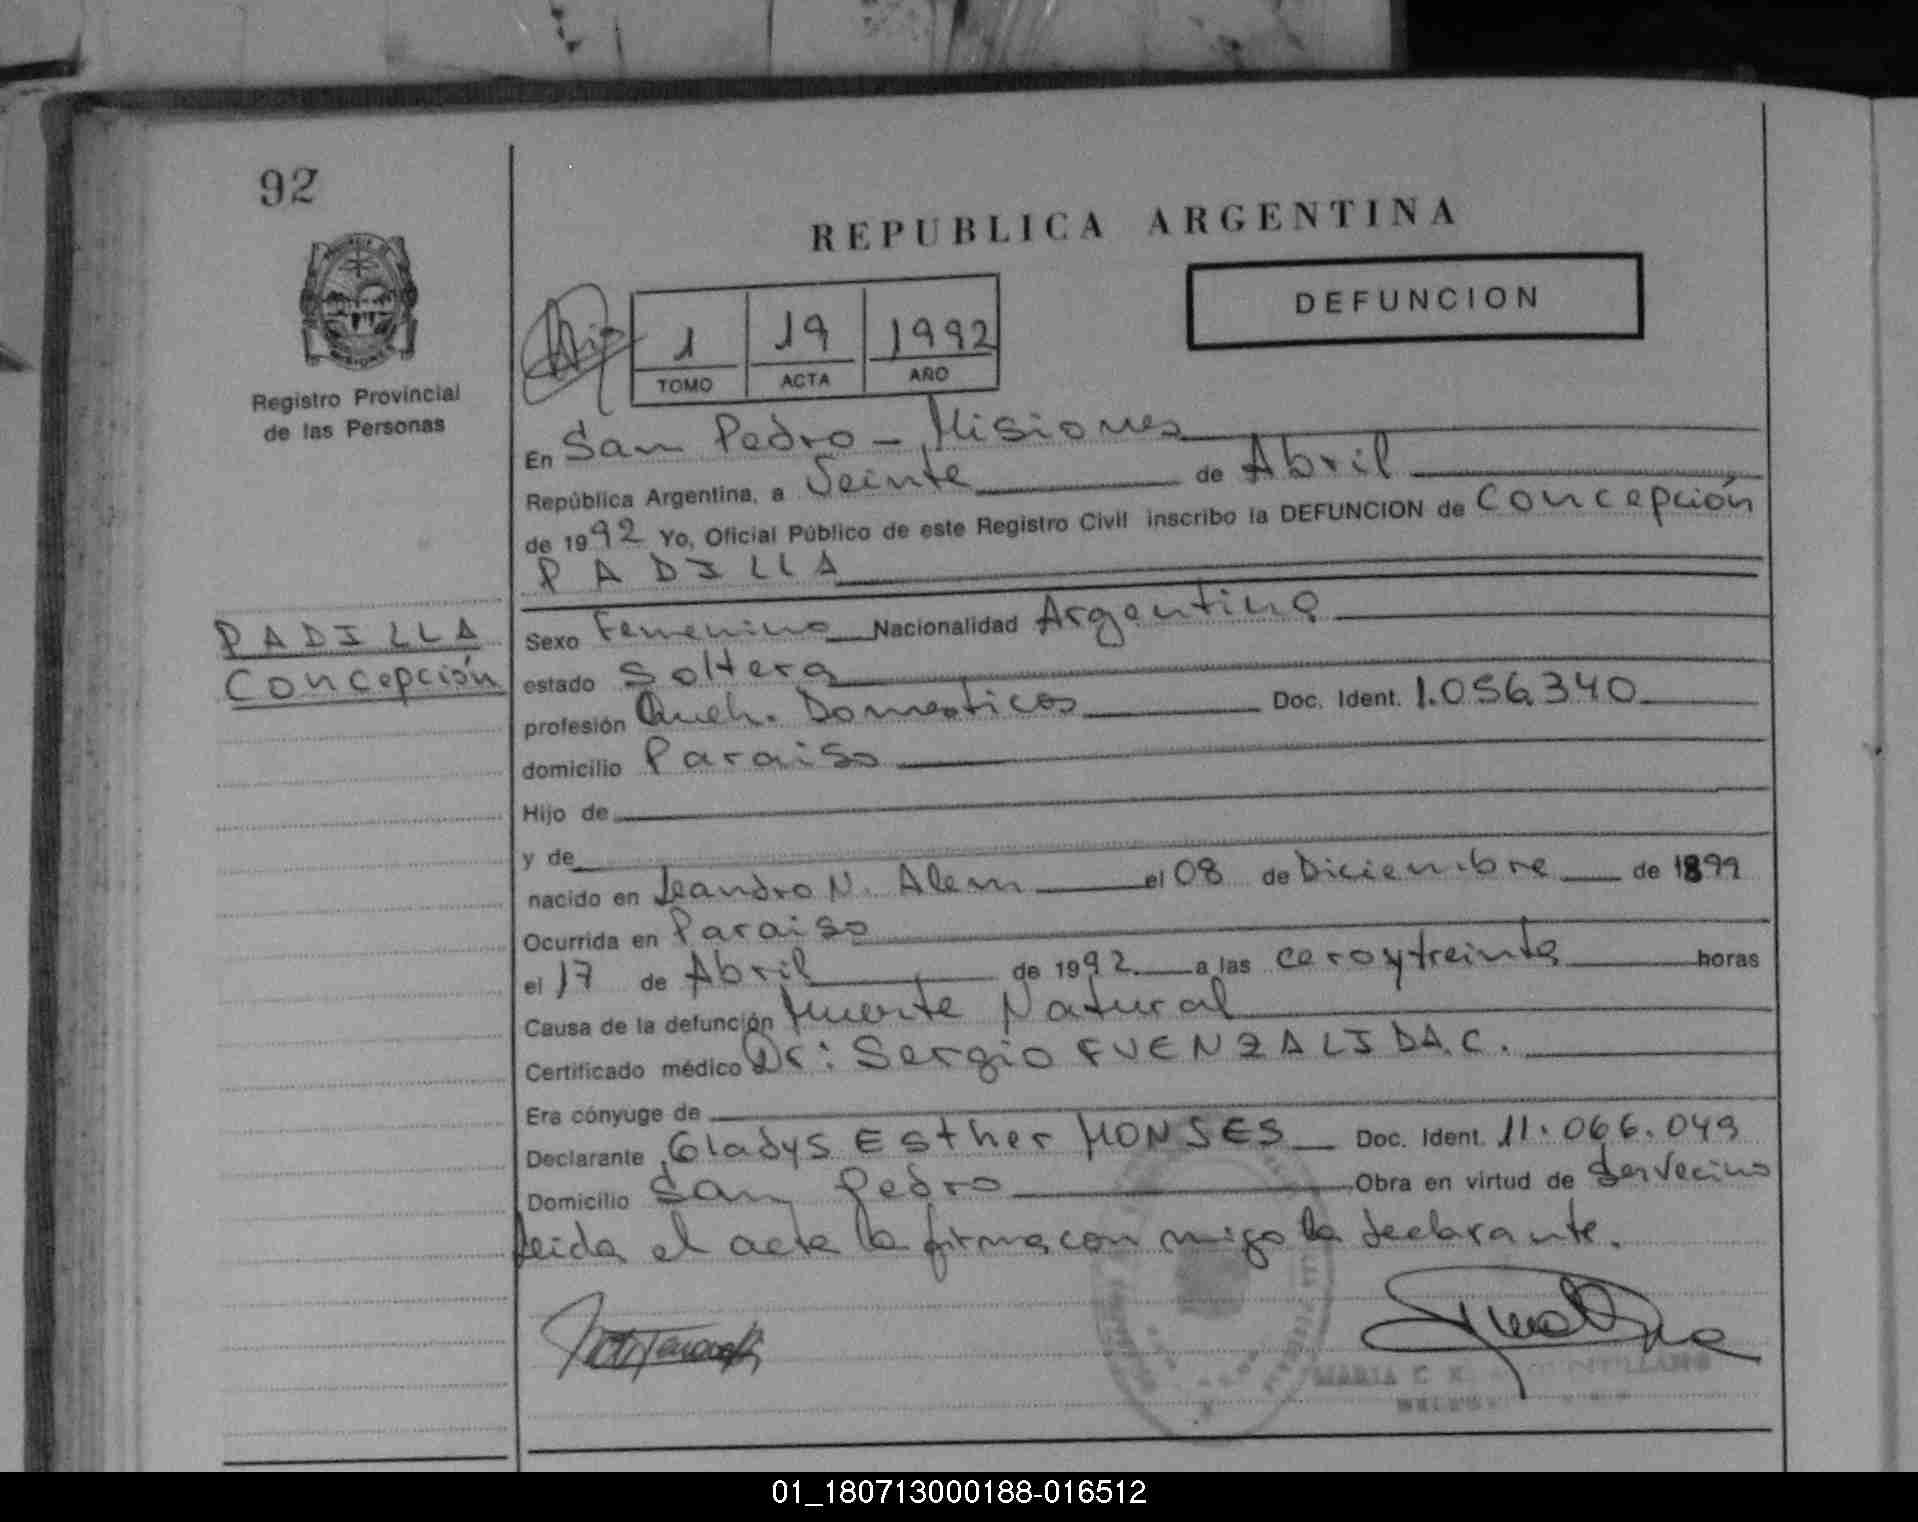 92
REPUBLICA ARGENTINA
DEFUNCION
1 19 1992
TOMO ACTA AÑO
Registro Provincial
de las Personas
En San Pedro - Misiones
República Argentina, a Veinte de Abril
de 1992 Yo, Oficial Público de este Registro Civil inscribo la DEFUNCION de Concepción
PADILLA
PADILLA
Concepción
Sexo Femenino Nacionalidad Argentina
estado Soltera
profesión Queh. Domesticos Doc. Ident. 1.056.340
domicilio Paraiso
Hijo de
y de
nacido en Leandro N. Alem el 08 de Diciembre de 1899
Ocurrida en Paraiso
el 17 de Abril de 1992 a las cero y treinta horas
Causa de la defunción Muerte Natural
Certificado médico Dr: Sergio FUENZALIDA C.
Era cónyuge de
Declarante Gladys Esther MONSES Doc. Ident. 11.066.049
Domicilio San Pedro Obra en virtud de ser vecino
leida el acta la firma con migo la declarante.
MARIA C.
01_180713000188-016512